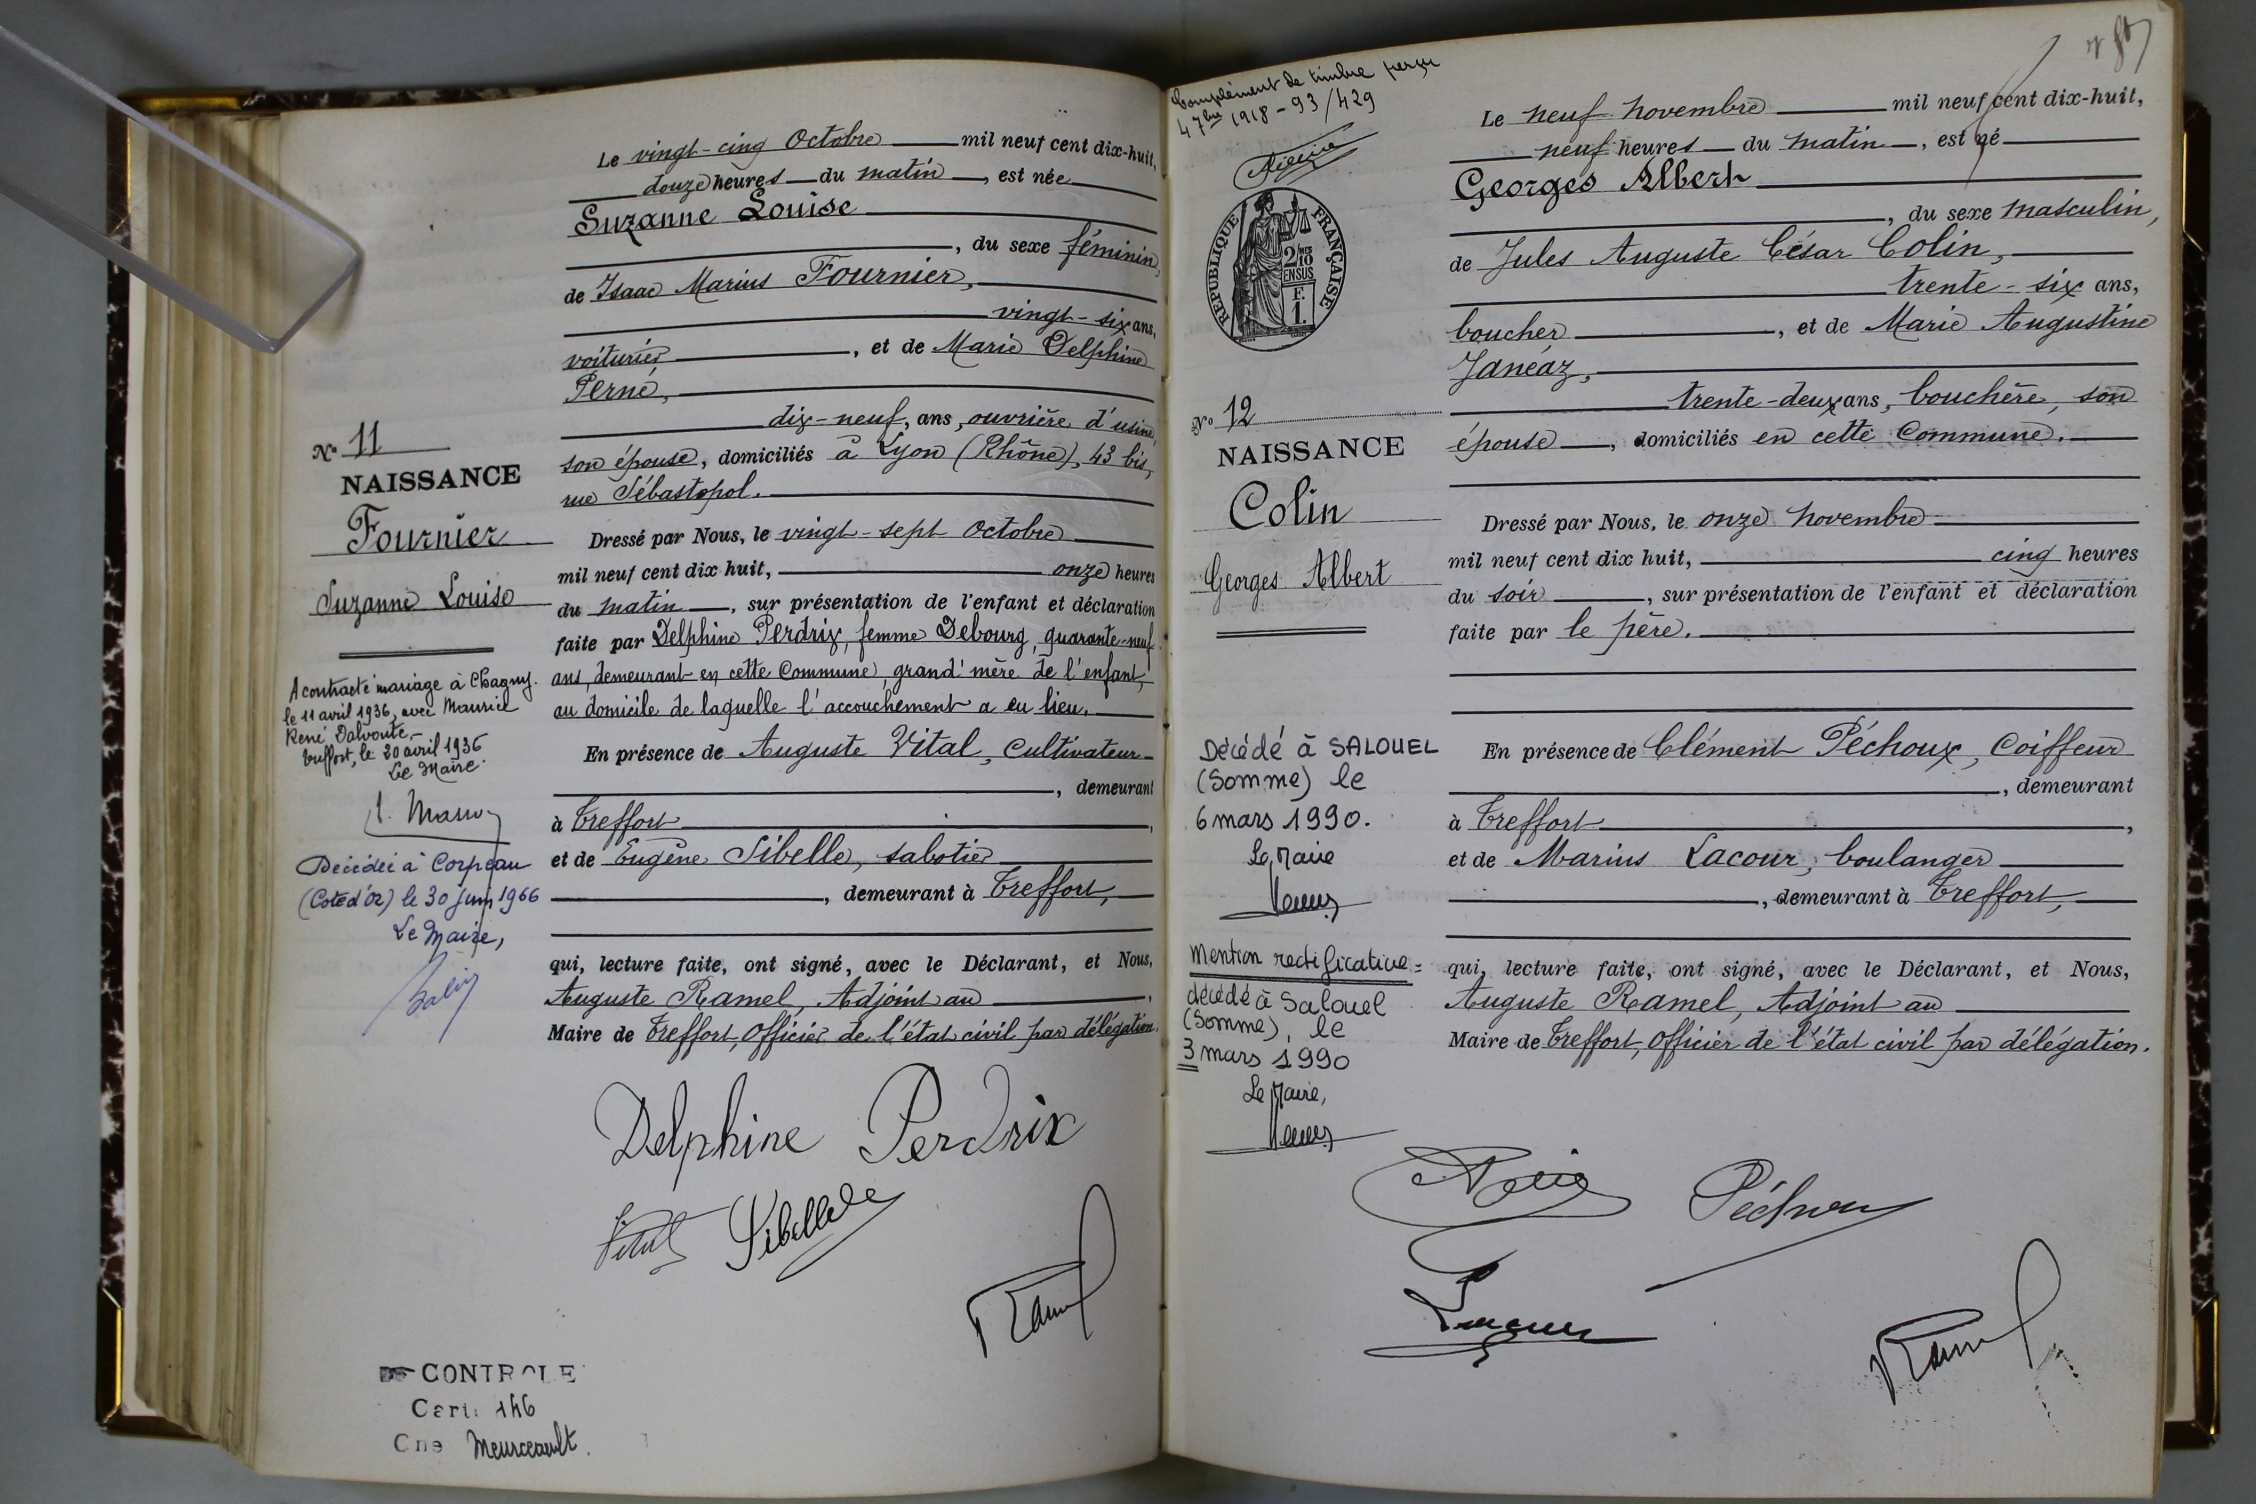 Le vingt-cinq Octobre mil neuf cent dix-huit,
douze heures du matin, est née
Suzanne Louise
, du sexe féminin,
de Isaac Marius Fournier,
vingt-six ans,
voiturier, et de Marie Delphine
Perné,
dix-neuf, ans, ouvrière d'usine,
son épouse, domiciliés à Lyon (Rhône), 43 bis,
rue Sébastopol.
Nº 11
NAISSANCE
Fournier
Suzanne Louise
Dressé par Nous, le vingt-sept Octobre
mil neuf cent dix huit, onze heures
du matin, sur présentation de l'enfant et déclaration
faite par Delphine Perdrix, femme Debourg, quarante-neuf
ans, demeurant en cette Commune, grand'mère de l'enfant,
au domicile de laquelle l'accouchement a eu lieu.
A contracté mariage à Chagny
le 11 avril 1936, avec Maurice
René Dalvoute.-
Treffort, le 20 avril 1936
Le Maire.
En présence de Auguste Vital, Cultivateur
, demeurant
à Treffort,
et de Eugène Sibelle, sabotier
, demeurant à Treffort,
Décédée à Corpeau
(Cote d'Or) le 30 juin 1966
Le Maire,
qui, lecture faite, ont signé, avec le Déclarant, et Nous,
Auguste Ramel, Adjoint au,
Maire de Treffort, Officier de l'état civil par délégation.
Delphine Perdrix
Vital Sibelle
Ramel
CONTROLE
Cart: 146
Cne Meurceault.
Complément de timbre perçu
4 7bre 1918 - 93/429
RÉPUBLIQUE FRANÇAISE
2/10
EN SUS
F.
1.
Le neuf novembre mil neuf cent dix-huit,
neuf heures du matin, est né
Georges Albert
, du sexe masculin,
de Jules Auguste César Colin,
trente-six ans,
boucher, et de Marie Augustine
Janéaz,
trente-deux ans, bouchère, son
épouse, domiciliés en cette Commune.
Nº 12
NAISSANCE
Colin
Georges Albert
Dressé par Nous, le onze novembre
mil neuf cent dix huit, cinq heures
du soir, sur présentation de l'enfant et déclaration
faite par le père.
Décédé à SALOUEL
(Somme) le
6 mars 1990.
Le Maire
En présence de Clément Péchoux, Coiffeur
, demeurant
à Treffort,
et de Marius Lacour, boulanger
, demeurant à Treffort,
Mention rectificative =
décédé à Salouel
(Somme), le
3 mars 1990
Le Maire,
qui, lecture faite, ont signé, avec le Déclarant, et Nous,
Auguste Ramel, Adjoint au
Maire de Treffort, Officier de l'état civil par délégation.
Péchoux
Lacour
Ramel